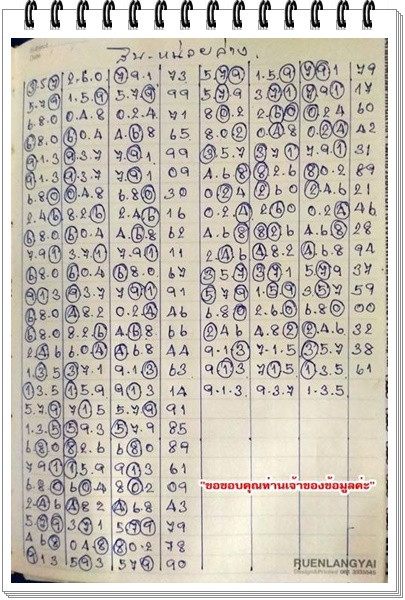 สิบ-หน่วยล่าง.
3.5.7 2.6.0 7.9.1 73 5.7.9 1.5.9 7.9.1 79
5.7.9 1.5.9 5.7.9 99 5.7.9 3.7.1 7.9.1 17
6.8.0 0.4.8 0.2.4 71 8.0.2 2.6.0 0.2.4 60
6.8.0 6.0.4 4.6.8 65 8.0.2 0.4.8 0.2.4 42
9.1.3 9.3.7 7.9.1 99 3.5.7 3.7.1 7.9.1 31
9.1.3 9.3.7 7.9.1 09 4.6.8 8.2.6 8.0.2 89
6.8.0 0.4.8 6.8.0 30 0.2.4 2.6.0 2.4.6 21
2.4.6 8.2.6 2.4.6 16 0.2.4 2.6.0 0.2.4 46
6.8.0 6.0.4 4.6.8 62 4.6.8 8.2.6 4.6.8 28
7.9.1 3.7.1 7.9.1 11 2.4.6 4.8.2 4.6.8 94
6.8.0 6.0.4 6.8.0 67 3.5.7 3.7.1 5.7.9 37
9.1.3 9.3.7 7.9.1 91 5.7.9 1.5.9 3.5.7 59
6.8.0 4.8.2 0.2.4 46 6.8.0 2.6.0 6.8.0 00
6.8.0 8.2.6 4.6.8 96 2.4.6 4.8.2 2.4.6 32
2.4.6 6.0.4 4.6.8 44 9.1.3 7.1.5 3.5.7 38
1.3.5 3.7.1 9.1.3 63 9.1.3 7.1.5 1.3.5 61
1.3.5 1.5.9 9.1.3 14 9.1.3 9.3.7 1.3.5
5.7.9 7.1.5 5.7.9 91
1.3.5 5.9.3 5.7.9 85
6.8.0 8.2.6 6.8.0 89
7.9.1 1.5.9 9.1.3 61
6.8.0 6.0.4 8.0.2 09
2.4.6 4.8.2 4.6.8 43
5.7.9 3.7.1 5.7.9 79
4.6.8 0.4.8 8.0.2 78
9.1.3 5.9.3 5.7.9 90
"ขอขอบคุณท่านเจ้าของข้อมูลค่ะ"
RUENLANGYAI